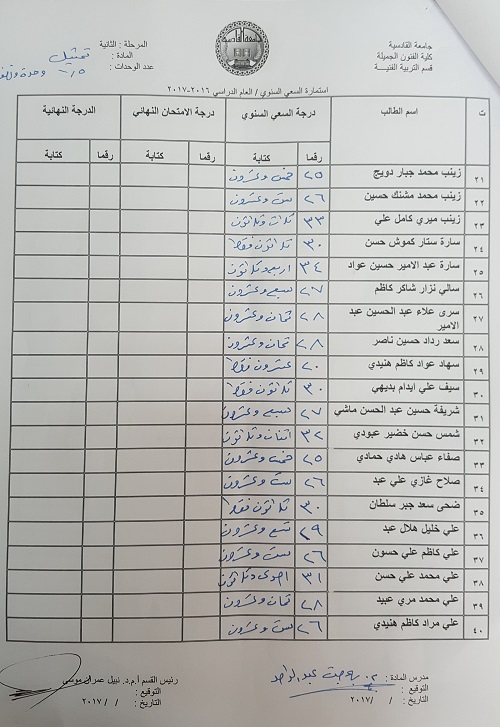 جامعة القادسية
كلية الفنون الجميلة
قسم التربية الفنية
المرحلة : الثانية
المادة : تمثيل
عدد الوحدات :
استمارة السعي السنوي / العام الدراسي ٢٠١٦-٢٠١٧
ت اسم الطالب درجة السعي السنوي درجة الامتحان النهائي الدرجة النهائية
رقما كتابة رقما كتابة رقما كتابة
٢١ زينب محمد جبار دويج ٢٥ خمس وعشرون
٢٢ زينب محمد مشنك حسين ٢٦ ست وعشرون
٢٣ زينب ميري كامل علي ٣٣ ثلاث وثلاثون
٢٤ سارة ستار كموش حسن ٣٠ ثلاثون فقط
٢٥ سارة عبد الامير حسين عواد ٣٤ اربع وثلاثون
٢٦ سالي نزار شاكر كاظم ٢٧ سبع وعشرون
٢٧ سرى علاء عبد الحسين عبد الامير ٢٨ ثمان وعشرون
٢٨ سعد رداد حسين ناصر ٢٨ ثمان وعشرون
٢٩ سهاد عواد كاظم هنيدي ٢٠ عشرون فقط
٣٠ سيف علي ايدام بديهي ٣٠ ثلاثون فقط
٣١ شريفة حسين عبد الحسن ماشي ٢٧ سبع وعشرون
٣٢ شمس حسن خضير عبودي ٣٢ اثنان وثلاثون
٣٣ صفاء عباس هادي حمادي ٢٥ خمس وعشرون
٣٤ صلاح غازي علي عبد ٢٦ ست وعشرون
٣٥ ضحى سعد جبر سلطان ٣٠ ثلاثون فقط
٣٦ علي خليل هلال عبد ٢٩ تسع وعشرون
٣٧ علي كاظم علي حسون ٢٦ ست وعشرون
٣٨ علي محمد علي حسن ٣١ احدى وثلاثون
٣٩ علي محمد مري عبيد ٢٨ ثمان وعشرون
٤٠ علي مراد كاظم هنيدي ٢٦ ست وعشرون
مدرس المادة : م.د. بهجت عبد الواحد
التوقيع :
التاريخ : / / ٢٠١٧
رئيس القسم أ.م.د. نبيل عمران موسى
التوقيع :
التاريخ : / / ٢٠١٧